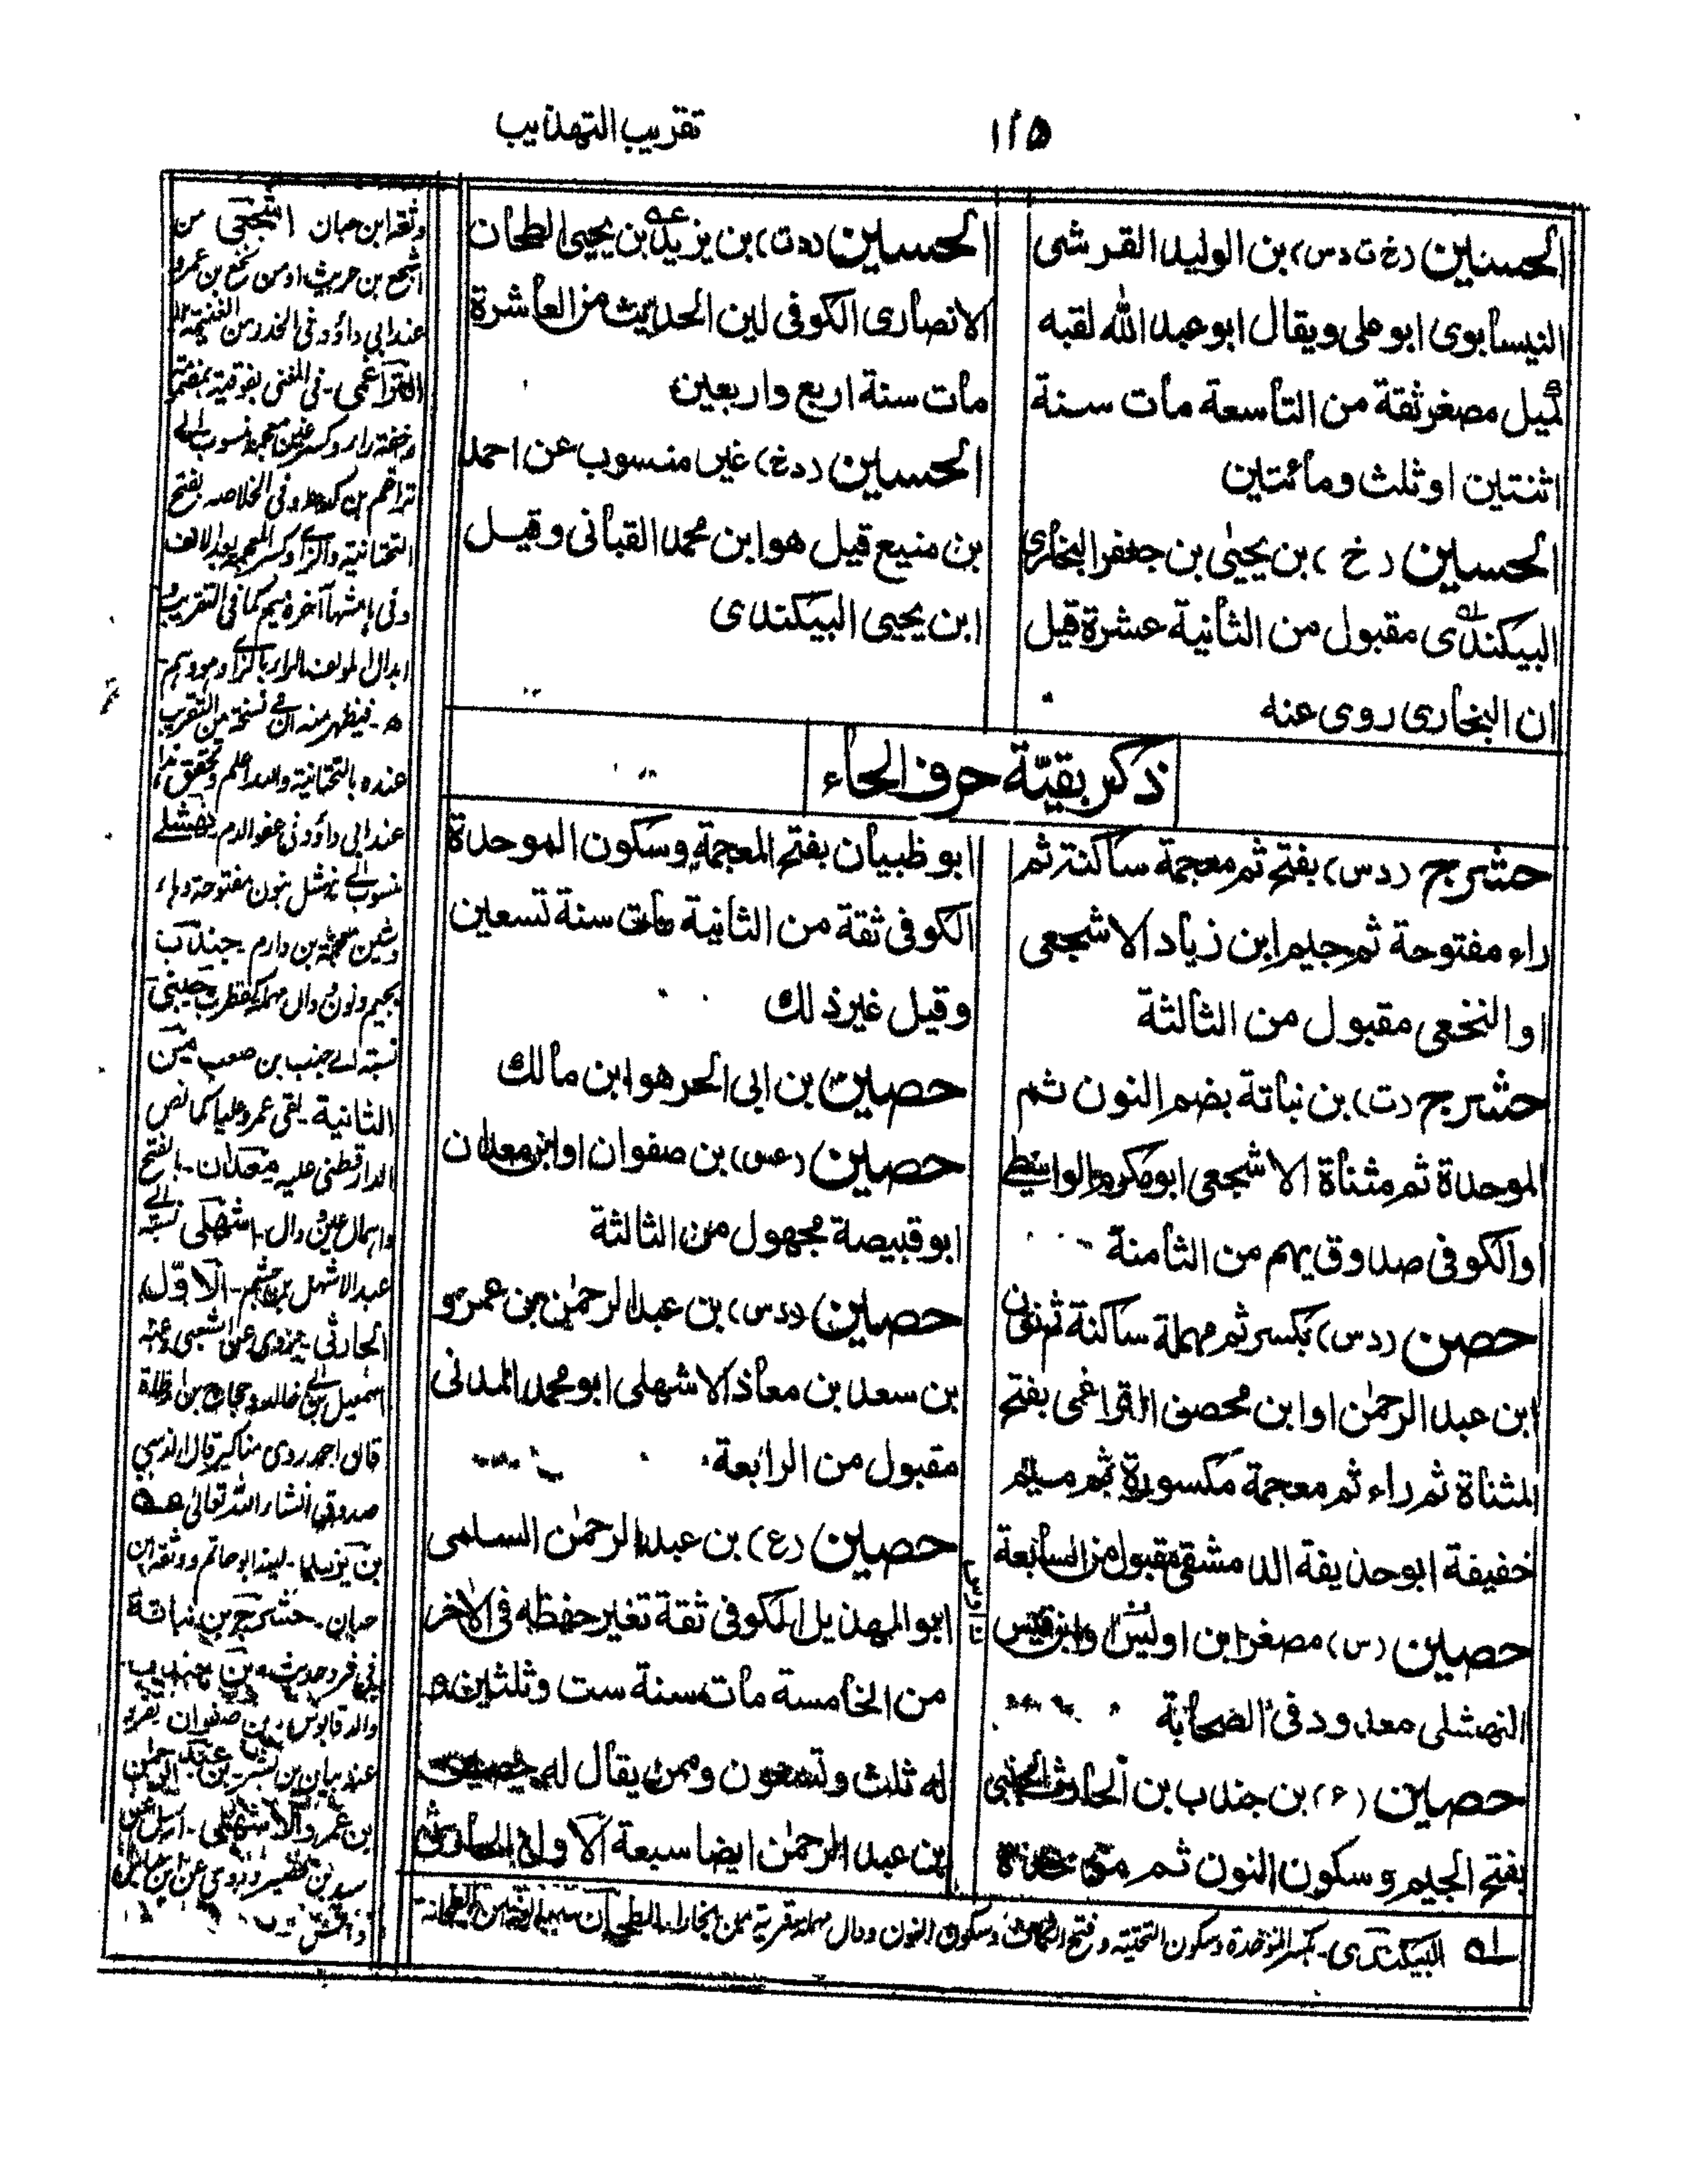 ١٢٥
تقريب التهذيب
الحسين (خ ت د س) بن الوليد القرشى
النيسابوى ابو على ويقال ابو عبد الله لقبه
كميل مصغر ثقة من التاسعة مات سنة
اثنتين او ثلث ومائتين
الحسين (خ) بن يحيىٰ بن جعفر البخارى
البيكندى مقبول من الثانية عشرة قيل
ان البخارى روى عنه
الحسين (د ت) بن يزيد بن يحيى الطحان
الانصارى الكوفى لين الحديث من العاشرة
مات سنة اربع واربعين
الحسين (خ) غير منسوب عن احمد
بن منيع قيل هو ابن محمد القبانى وقيل
ابن يحيى البيكندى
ذكر بقيّة حرف الحاء
حشرج (د س) بفتح ثم معجمة ساكنة ثم
راء مفتوحة ثم جيم ابن زياد الاشجعى
او النخعى مقبول من الثالثة
حشرج (ت) بن نباتة بضم النون ثم
الموحدة ثم مثناة الاشجعى ابو مكرم الواسطى
والكوفى صدوق يهم من الثامنة
حصن (د س) بكسر ثم مهملة ساكنة ثم نون
ابن عبد الرحمٰن او ابن محصن التراغمى بفتح
المثناة ثم راء ثم معجمة مكسورة ثم ميم
خفيفة ابو حذيفة الدمشقى مقبول من السابعة
حصين (س) مصغر ابن اوس او ابن قيس
النهشلى معدود فى الصحابة
حصين (ع) بن جندب بن الحارث الجنبى
بفتح الجيم وسكون النون ثم موحدة
ابو ظبيان بفتح المعجمة وسكون الموحدة
الكوفى ثقة من الثانية مات سنة تسعين
وقيل غير ذلك
حصين بن ابى الحر هو ابن مالك
حصين (عس) بن صفوان او ابن معدان
ابو قبيصة مجهول من الثالثة
حصين (د س) بن عبد الرحمٰن بن عمرو
بن سعد بن معاذ الاشهلى ابو محمد المدنى
مقبول من الرابعة
حصين (ع) بن عبد الرحمٰن السلمى
ابو الهذيل الكوفى ثقة تغير حفظه فى الاٰخر
من الخامسة مات سنة ست وثلثين و
له ثلث وتسعون وممن يقال له حصين
بن عبد الرحمٰن ايضا سبعة الاول الحارثى
وثقه ابن حبان اشجعى من
اشجع بن حريث او من نخع بن عمرو
عند ابى داؤد فى الحذر من الغنيمة
التراغمى - فى المغنى بفوقية
وخفة راء وكسر غين معجمة منسوب الى
وفى الخلاصه بفتح
التحتانية والزاء وكسر المعجمة بعد الالف
وفى هامشها آخره ميم كما فى التقريب و
ابدال المؤلف الراء بالزاء وهو وهم
ه - فيظهر منه ان فى نسخة من التقريب
عنده بالتحتانية والله اعلم
عند ابى داؤد فى عفو الدم نهشلے
منسوب الے نهشل بنون مفتوحة وهاء
وشين معجمة بن دارم - جندب
بجيم ونون ودال مهملة جنبى
نسبة الے جنب بن صعب من
الثانية - لقى عمر وعليا كما نص
الدارقطنى عليه معدان - بفتح
واهمال عين ودال - اشهلى نسبة الے
عبد الاشهل بن جشم - الاوّل
الحارثى - يروى عن الشعبى وعنه
اسمعيل بن ابى خالد وحجاج بن ارطاة
قال احمد روى مناكير قال الذهبى
صدوق انشاء الله تعالىٰ عه
بن يزيد - لينه ابو حاتم ووثقه ابن
حبان - حشرج بن نباتة
والد قابوس - بن صفوان تفرد
عنه بيان بن بشر بن عبد الرحمٰن
بن عمرو الاشهلى - ارسل عن
اسيد بن حضير وروى عن ابن عباس
وانس
له البيكندى - بكسر الموحدة وسكون التحتية وفتح الكاف وسكون النون ودال مهملة قرية من بخارا